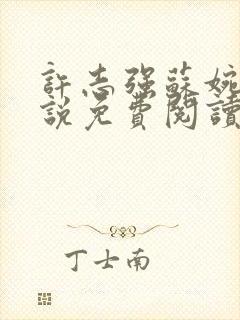 許志强蘇婉
説免費閱讀
丁士南